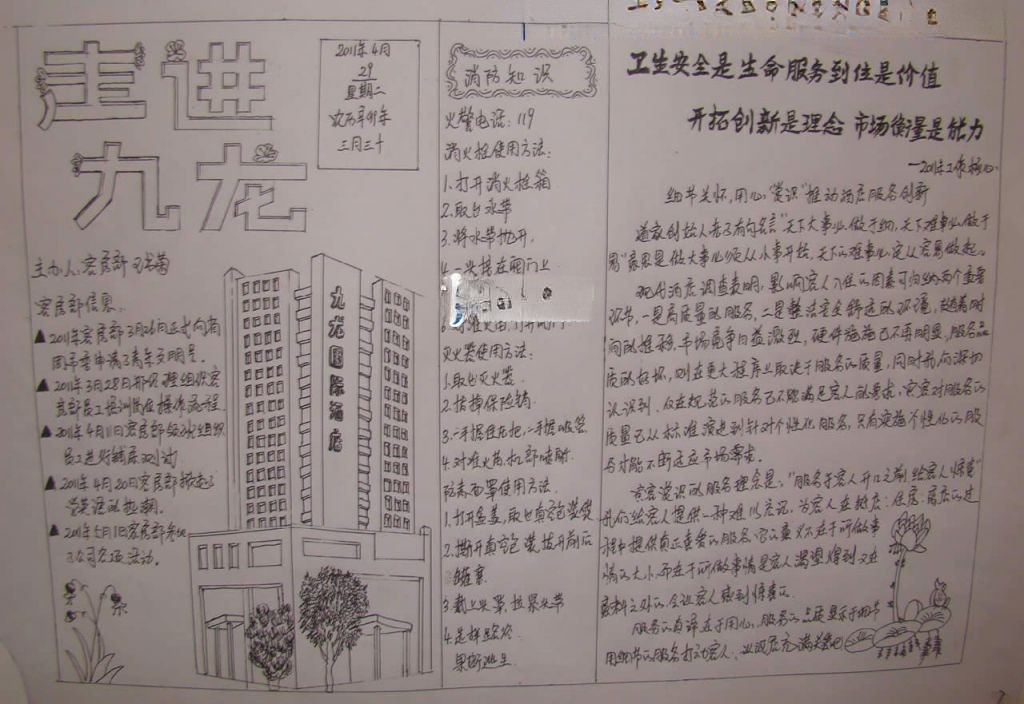 走进
九龙
2011年4月
29
星期二
农历辛卯年
三月三十
主办人：客房部
客房部信息
▲2011年3月26日正式向省
▲2011年3月28日
▲2011年4月11日客房部
▲2011年4月20日客房部
▲2011年5月1日客房部
公司各项活动。
九龙国际酒店
消防知识
火警电话：119
消火栓使用方法：
1.打开消火栓箱
2.取出水带
3.将水带抛开，
4.一头接在阀门上
灭火器使用方法：
1.取出灭火器
2.拔掉保险销
3.一手握住压把，一手握喷管
4.对准火苗根部喷射
防毒面罩使用方法
1.打开盒盖，取出真空包装袋
2.撕开真空包装，拔开前后
罐塞
3.戴上头罩，拉紧头带
4.选择路径
果断逃生
卫生安全是生命 服务到位是价值
开拓创新是理念 市场衡量是能力
—2011年工作核心
细节关怀，用心"赏识"推动酒店服务创新
道家创始人老子有句名言"天下大事必做于细，天下难事必做于
易"意思是做大事必须从小事开始，天下的难事必定从容易做起。
现代酒店调查表明，影响客人入住的因素可归纳两个重要
环节，一是高质量的服务，二是整洁安全舒适的环境，随着时
间的推移，市场竞争日益激烈，硬件设施已不再明显，服务品
质的好坏，则在更大程度上取决于服务的质量，同时我们深切
认识到，仅在规范的服务已不能满足客人的要求，宾客对服务的
质量已从标准演进到针对个性化服务，只有实施个性化的服
务才能不断适应市场需求。
宾客赏识的服务理念是："服务于客人开口之前给客人惊喜"
我们给客人提供一种难以忘记，为客人在抵店、住店、离店的过
程中提供真正喜爱的服务，它的意义不在于所做事
情的大小，而在于所做事情是客人渴望得到又在
意料之外的，会让客人感到惊喜的
服务的真谛在于用心，服务的品质显示于细节
用细节的服务打动客人